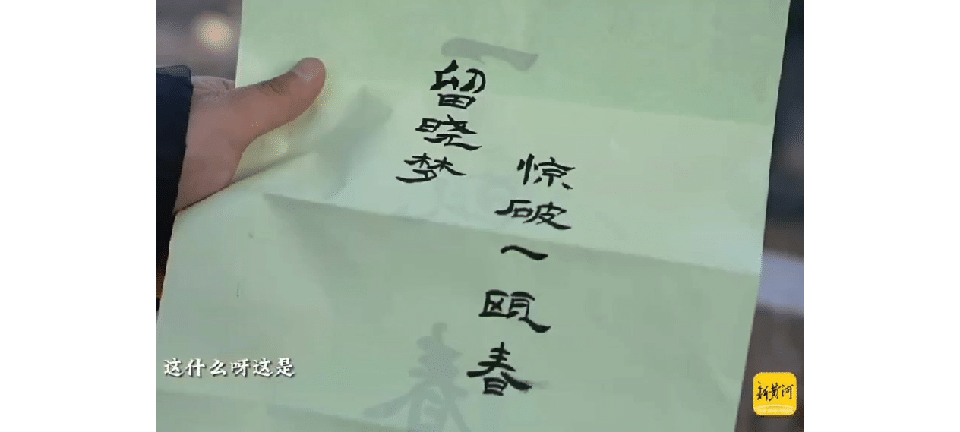 留晓梦
惊破一瓯春
这什么呀这是
新黄河